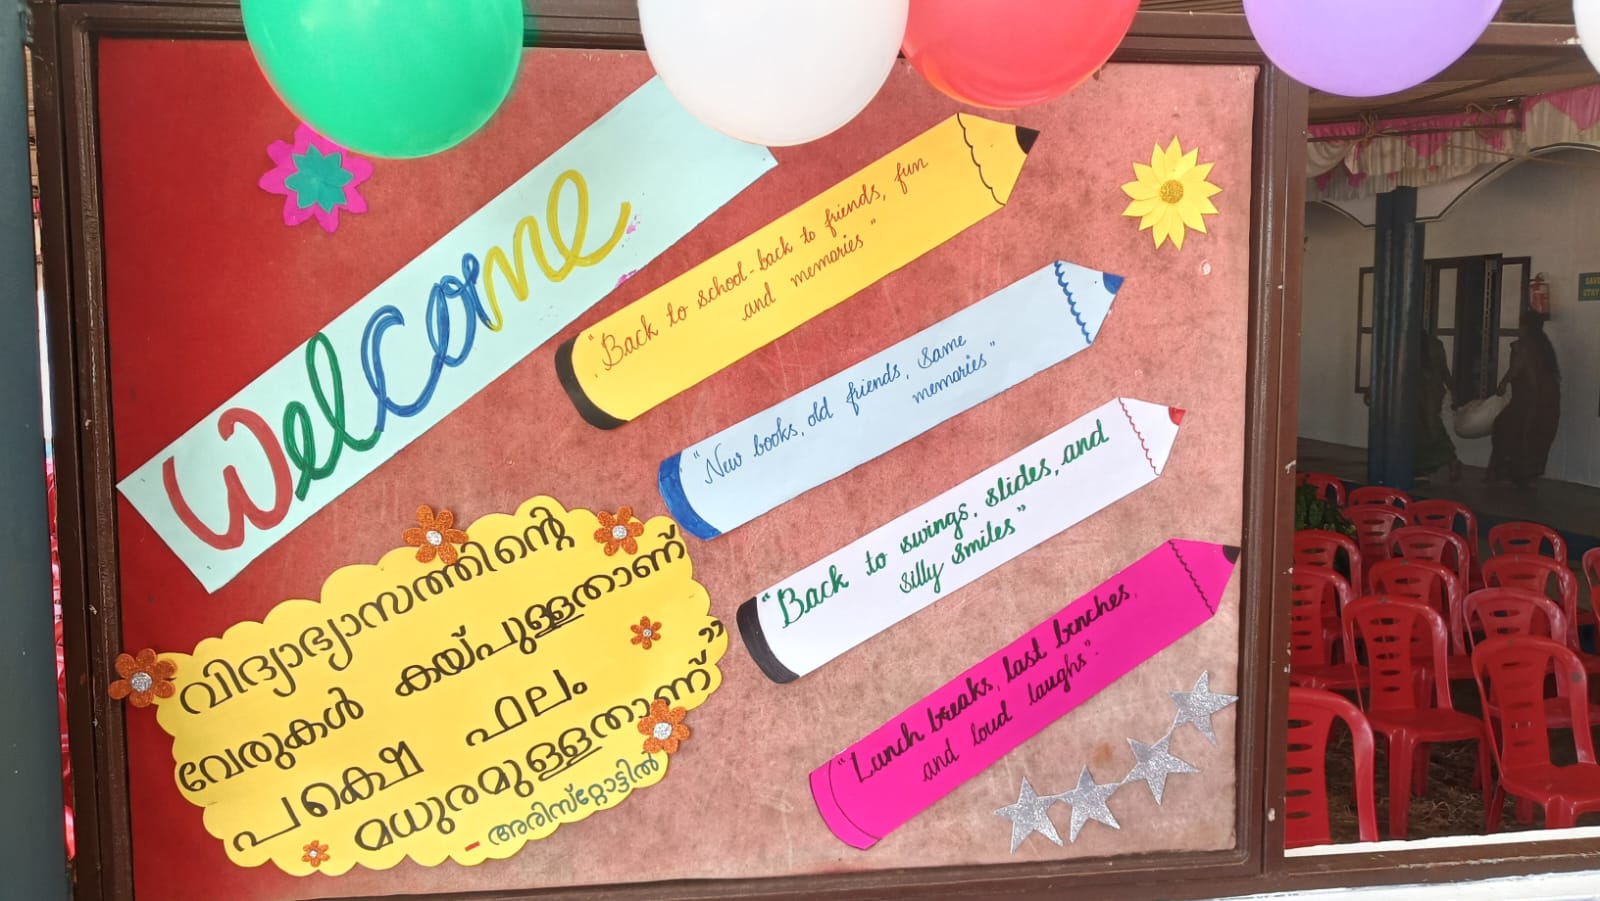 Welcome
"Back to school-back to friends, fun
and memories"
"New books, old friends, same
memories"
"Back to swings, slides, and
silly smiles"
"Lunch breaks, last benches,
and loud laughs".
വിദ്യാഭ്യാസത്തിന്റെ
വേരുകൾ കയ്പുള്ളതാണ്
പക്ഷെ ഫലം
മധുരമുള്ളതാണ്"
- അരിസ്റ്റോട്ടിൽ